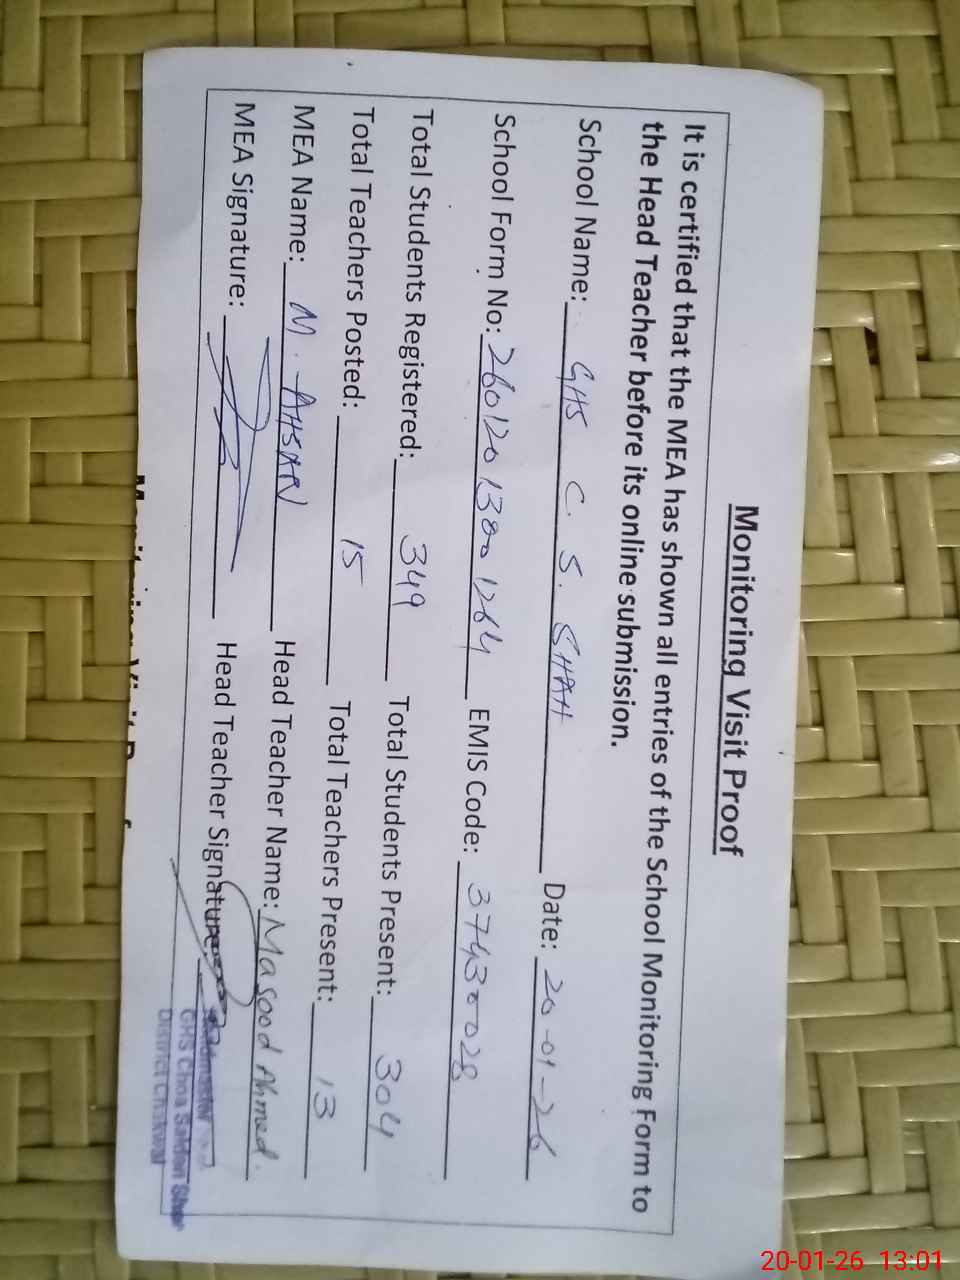 Monitoring Visit Proof
It is certified that the MEA has shown all entries of the School Monitoring Form to
the Head Teacher before its online submission.
School Name: GHS C. S. SHAH Date: 20-01-26
School Form No: 26012013001264 EMIS Code: 37430028
Total Students Registered: 349 Total Students Present: 304
Total Teachers Posted: 15 Total Teachers Present: 13
MEA Name: M. AHSAN Head Teacher Name: Masood Ahmed.
MEA Signature: Head Teacher Signature:
Headmaster
GHS Choa Saidan Shah
District Chakwal
20-01-26 13:01